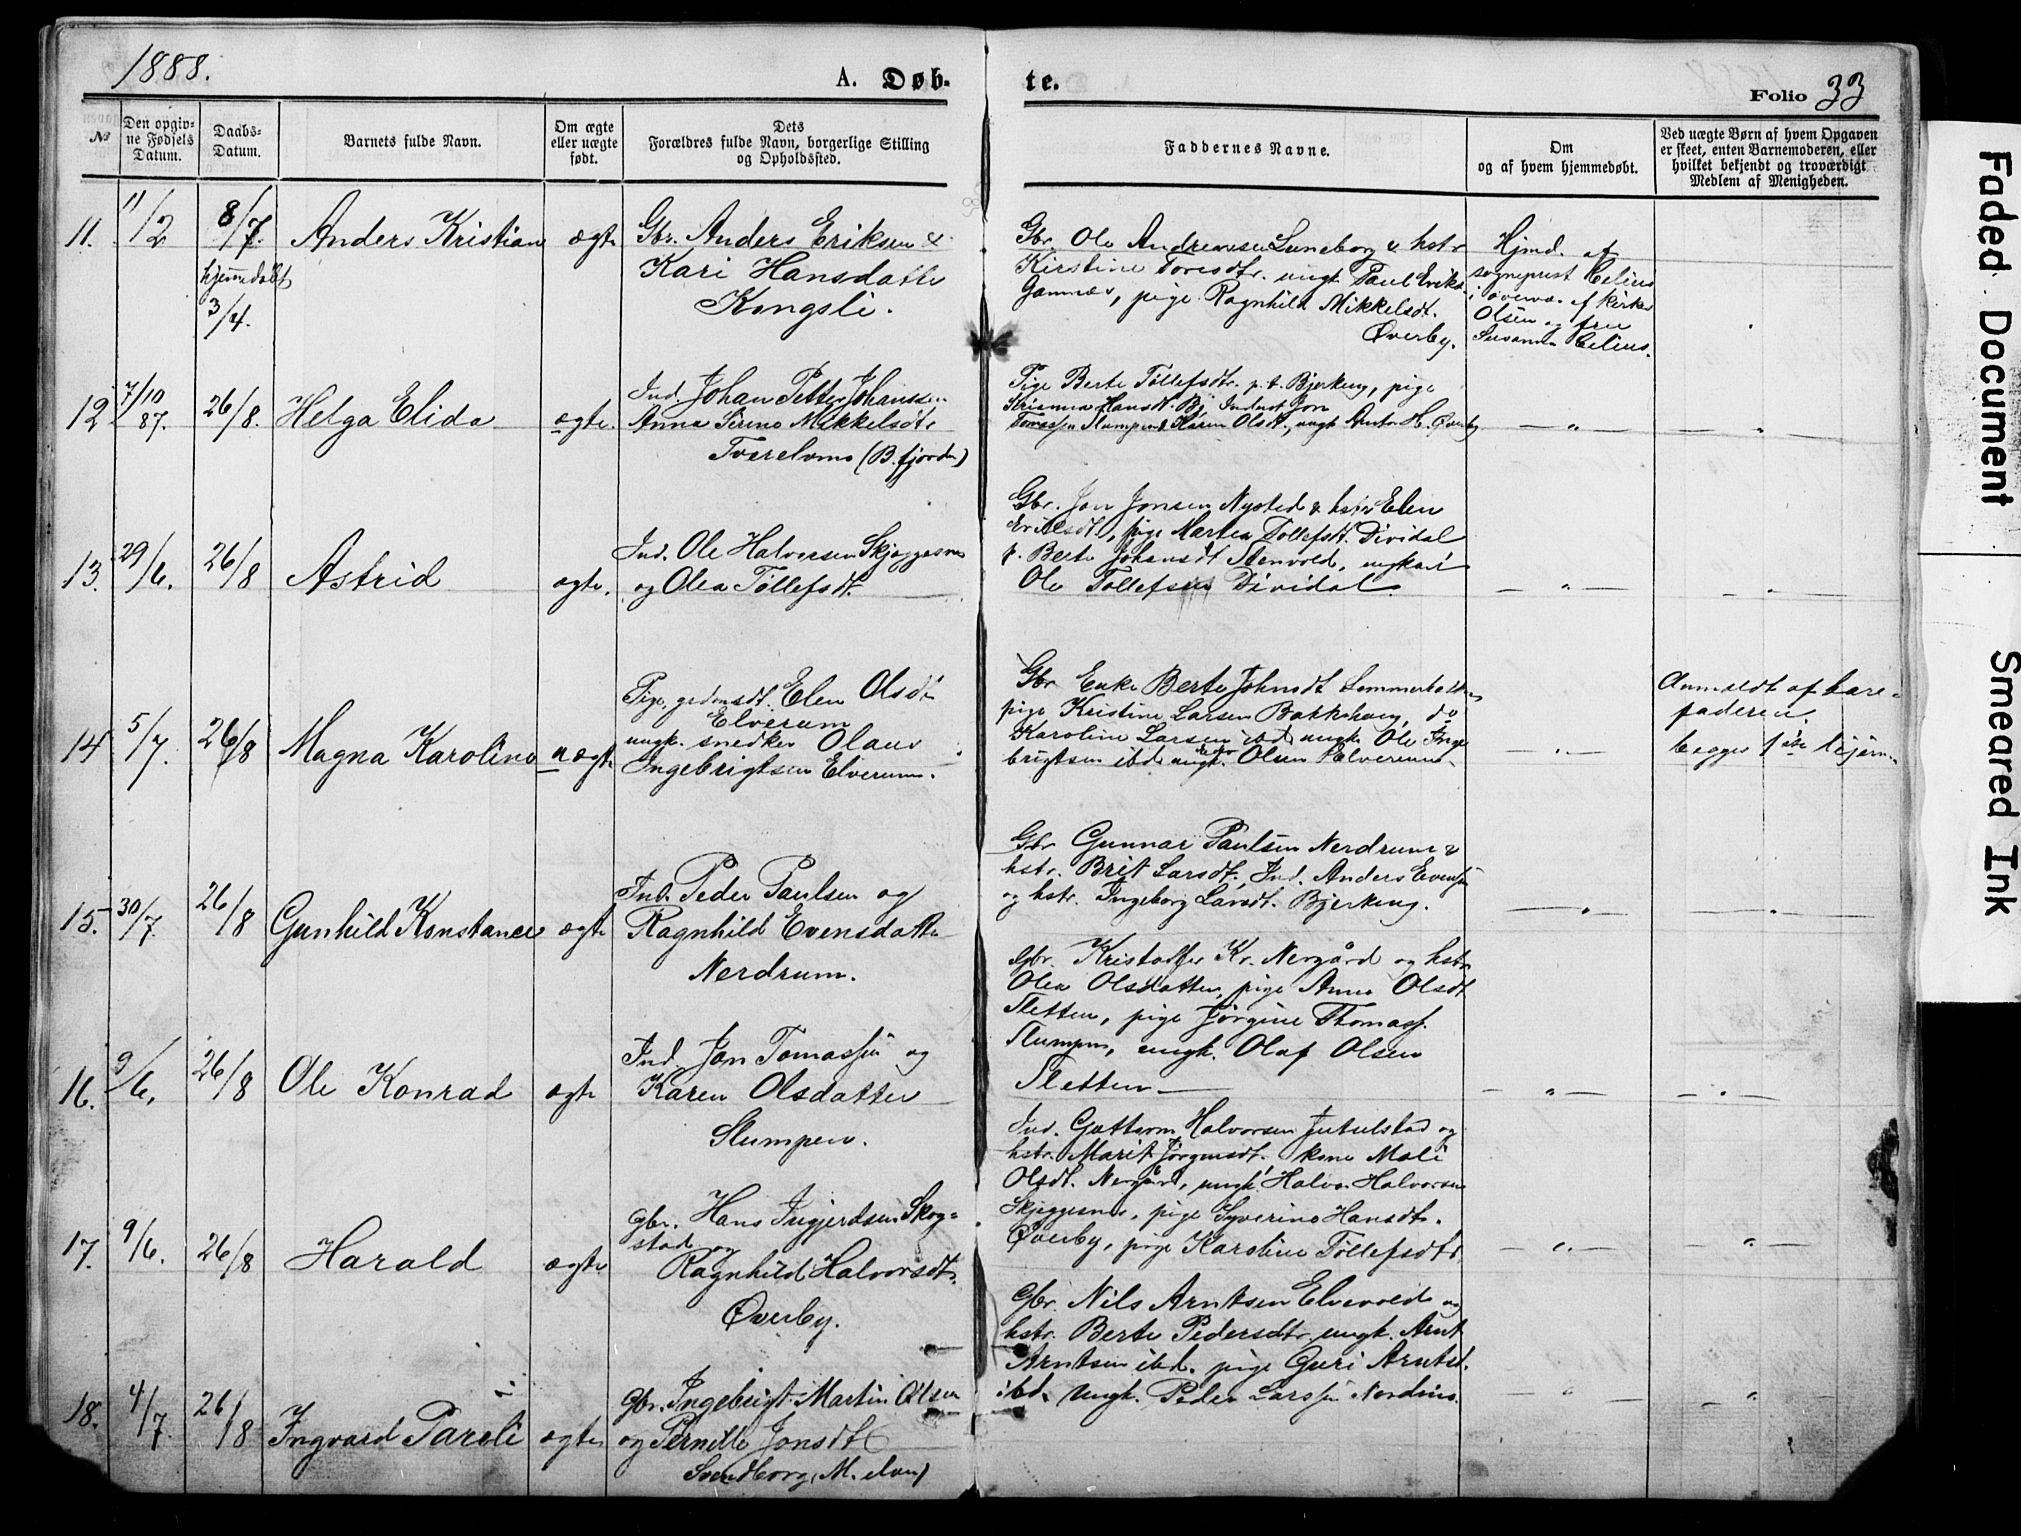 1888.
A. Døb-
te.
Folio 33
№
Den opgiv-
ne Fødsels
Datum.
Daabs-
Datum.
Barnets fulde Navn.
Om ægte
eller uægte
født.
Dets
Forældres fulde Navn, borgerlige Stilling
og Opholdssted.
Faddernes Navne.
Om
og af hvem hjemmedøbt.
Ved uægte Børn af hvem Opgaven
er skeet, enten Barnemoderen, eller
hvilket bekjendt og troværdigt
Medlem af Menigheden.
11.
11/2
8/7.
hjemdøbt
3/4.
Anders Kristian
ægte
Gbr. Anders Eriksen &
Kari Hansdatter
Kongsli.
Gbr. Ole Andreassen Luneborg & hstr
Kirstine Toresdtr. ungk. Paul Eriks.
pige Ragnhild Mikkelsdt.
Øverby.
Hjmd. af
sogneprest Celius
i overvær af kirkes.
Olsen og fru
Susanna Celius.
12
7/10
87.
26/8.
Helga Elida
ægte.
Ind. Johan Petter Johanssen
Anna Serine Mikkelsdtr
Tverelvmo (B. fjorden)
Pige Berte Tollefsdtr. p.t. Bjerkeng, pige
Hansdt. Bj. Inderst Jon
Tomassen Slumpen & Karen Olsdt, ungk Anton H. Øverby
13.
29/6.
26/8
Astrid
ægte.
Ind. Ole Halvorsen Skjæggesnes
og Olea Tollefsdt.
Gbr. Jon Jonsen Nysted & hstr Elen
Eriksdt, pige Martea Tollefsdt. Dividal
p. Berte Johansdt Stenvold, ungkarl
Ole Tollefsen Dividal.
14
5/7.
26/8
Magna Karoline
uægte
Pige, gdmsdt. Elen Olsdtr
Elverum
ungk. snedker Olaus
Ingebrigtsen Elverum.
Gbr Enke Berte Johnsdt
pige Kristine Larsen Bakkehaug, do
Karoline Larsen ibd. ungk Ole Inge
brigtsen ibd. ungk. Olsen Elverum
Anmeldt af barne-
faderen.
begges 1ste lejerm.
15.
30/7.
26/8
Gunhild Konstance
ægte
Ind. Peder Paulsen og
Ragnhild Evensdatter
Nerdrum.
Gbr Gunnar Paulsen Nerdrum &
hstr. Brit Larsdt., Ind. Anders Evensen
og hstr. Ingeborg Larsdt. Bjerkeng.
16.
9/6.
26/8
Ole Konrad
ægte
Ind. Jon Tomassen og
Karen Olsdatter
Slumpen.
Gbr. Kristoffer Kr. Nergård og hstr
Olea Olsdatter, pige Anne Olsdt
Sletten, pige Jørgine Thomass.
Slumpen, ungk. Olaf Olsen
Sletten
17.
9/6.
26/8
Harald
ægte
Gbr. Hans Ingjerdsen Skog=
stad og
Ragnhild Halvorsdt.
Øverby.
Ind. Guttorm Halvorsen Jutulstad og
hstr. Marit Jørgensdt. kone Mali
Olsdt. Nergård, ungk. Halvor Halvorsen
Skjæggesnes, pige Syverine Hansdtr.
Øverby, pige Karoline Tollefsdtr.
18.
4/7.
26/8
Ingvard Pareli
ægte
Gbr. Ingebrigt Martin Olsen
og Pernille Jonsdt
Svendborg, (M. elven)
Gbr. Nils Arntsen Elvevold og
hstr. Berte Pedersdtr ungk. Arnt
Arntsen ibd. pige Guri Arntsd.
ibd. Ungk. Peder Larssen Nordmo.
Faded Document
Smeared Ink